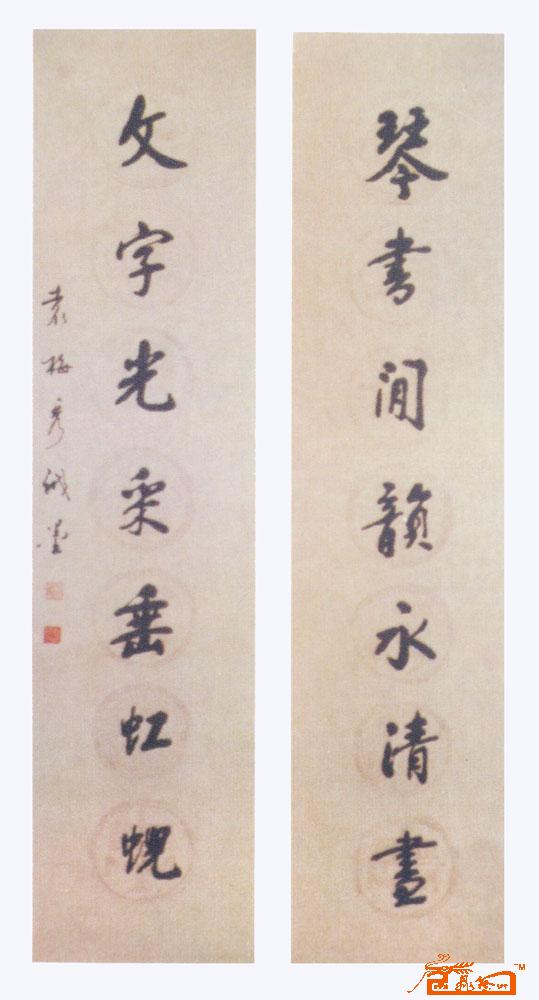 琴書閒韻永清晝
文字光采垂虹蜺
袁梅
TM